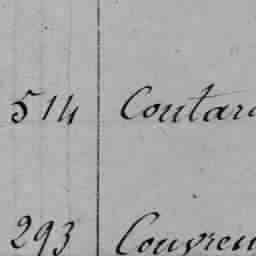 514 Coutar
293 Couvreu